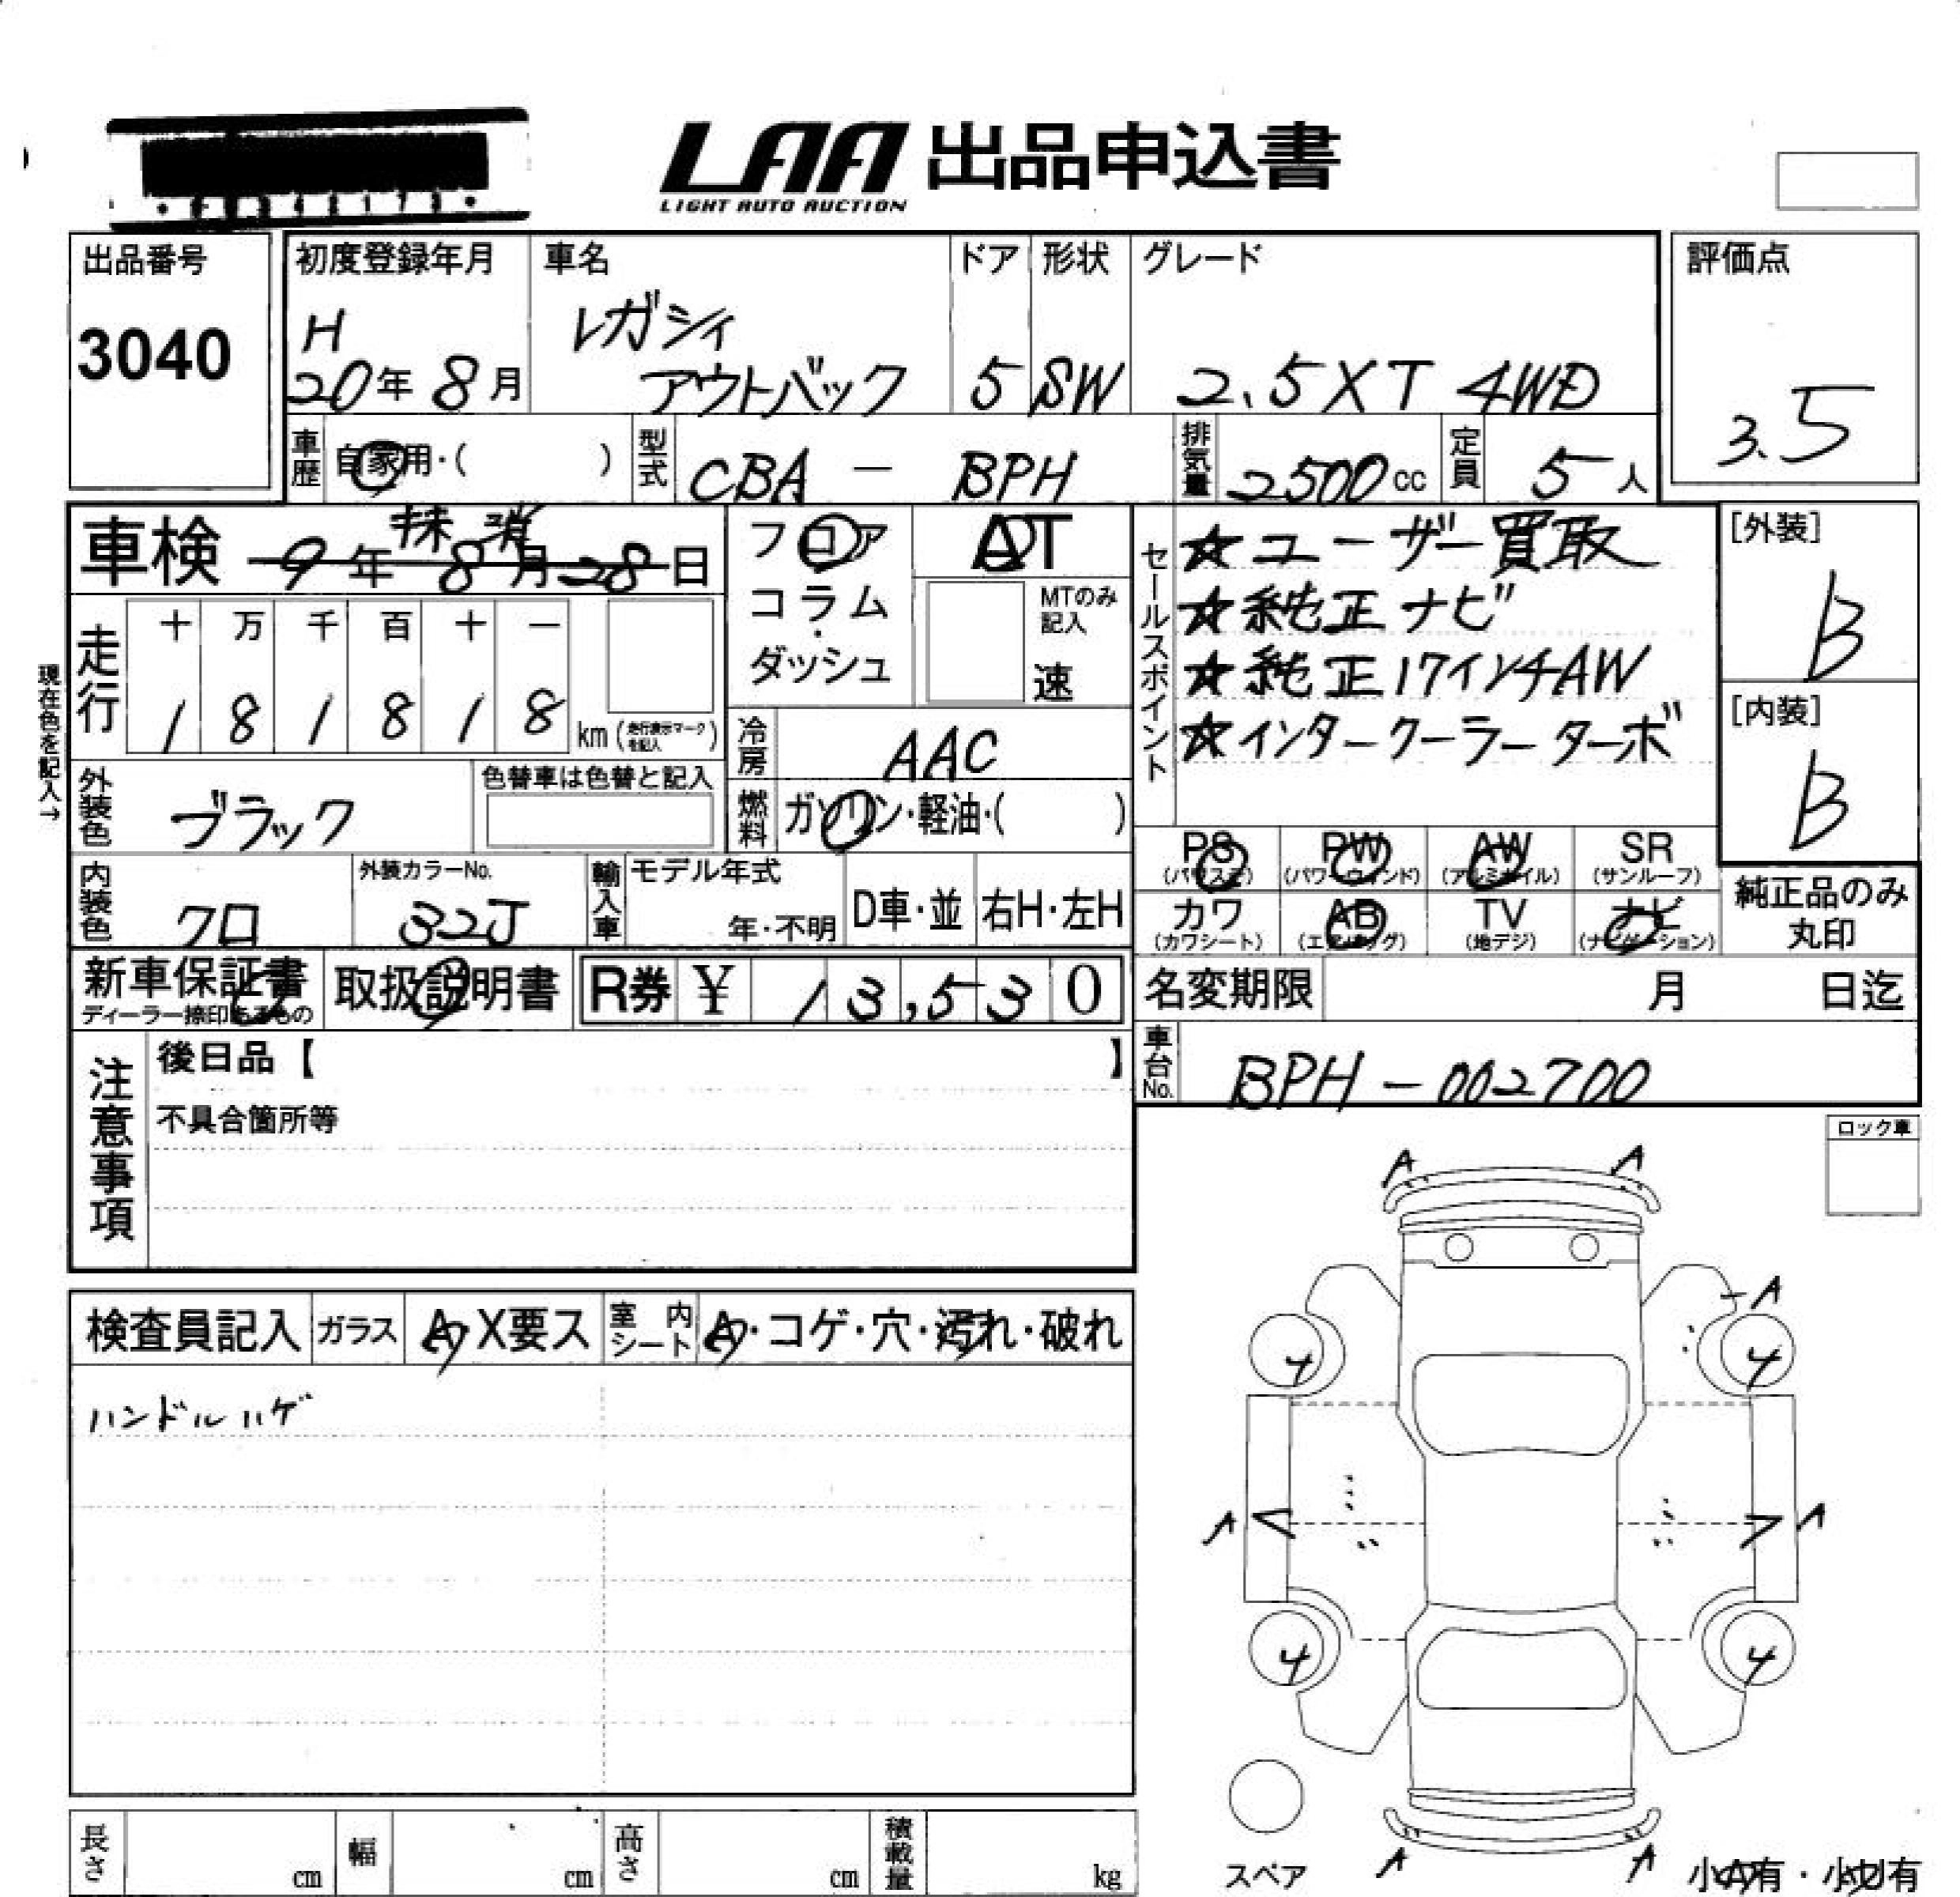 LAA 出品申込書
LIGHT AUTO AUCTION
出品番号
3040
初度登録年月
H
20年 8月
車名
レガシィ
アウトバック
ドア
5
形状
SW
グレード
2.5XT 4WD
評価点
3.5
車歴
自家用・( )
型式
CBA - BPH
排気量
2500cc
定員
5人
車検
抹消
9年 8月 28日
フロア
コラム
・
ダッシュ
AT
MTのみ
記入
速
セールスポイント
☆ユーザー買取
☆純正ナビ
☆純正17インチAW
☆インタークーラーターボ
[外装]
B
[内装]
B
現在色を記入→
走行
十 万 千 百 十 一
1 8 1 8 1 8
km (走行表示マークを記入)
冷房
AAC
外装色
ブラック
色替車は色替と記入
燃料
ガソリン・軽油・( )
PS
(パワステ)
PW
(パワーウィンド)
AW
(アルミホイル)
SR
(サンルーフ)
内装色
クロ
外装カラーNo.
32J
輸入車
モデル年式
年・不明
D車・並
右H・左H
カワ
(カワシート)
AB
(エアバッグ)
TV
(地デジ)
ナビ
(ナビゲーション)
純正品のみ
丸印
新車保証書
ディーラー捺印あるもの
取扱説明書
R券 ¥ 13,530
名変期限
月 日迄
注意事項
後日品【 】
不具合箇所等
車台No.
BPH-002700
ロック車
検査員記入
ガラス
A・X要ス
室内シート
A・コゲ・穴・汚れ・破れ
ハンドルハゲ
A A
-A
4 4
A A
4 4
A A
スペア
小A有・小U有
長さ
cm
幅
cm
高さ
cm
積載量
kg